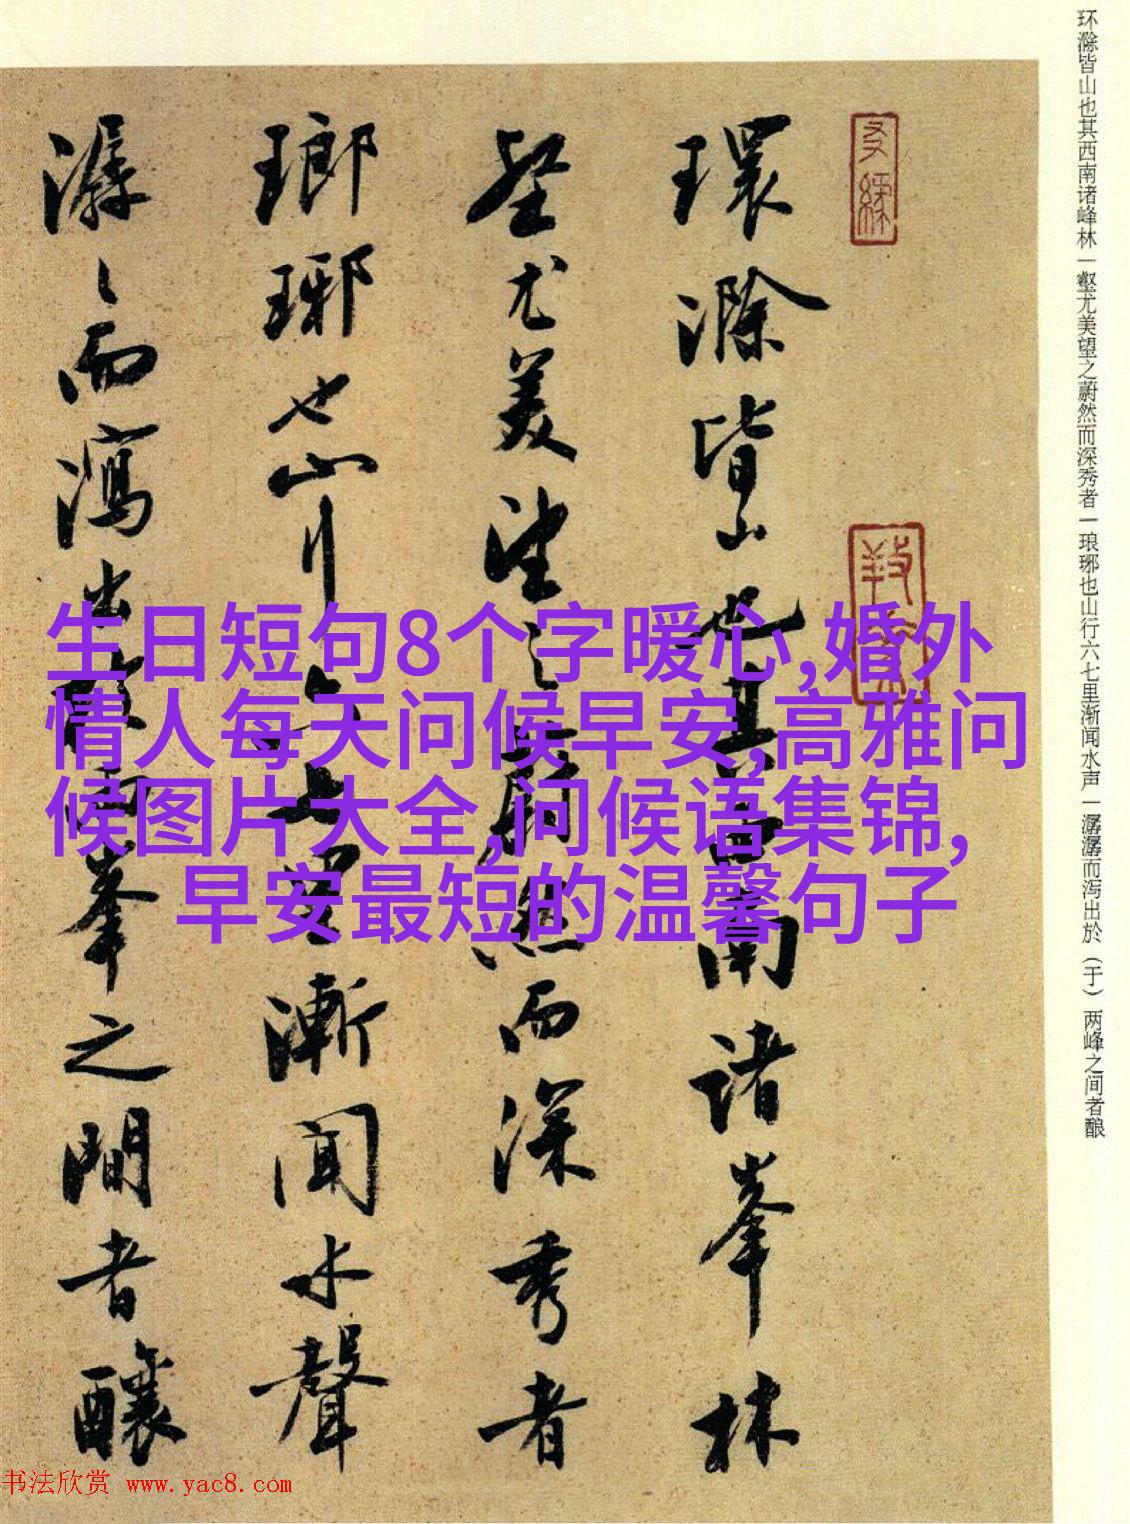 环滁皆山也其西南诸峰林一壑尤美望之蔚然而深秀者一琅琊也山行六七里渐闻水声一潺潺而泻出於（于）两峰之间者酿
環滁皆山也其西南諸峯林
壑尤美望之蔚然而深秀者
瑯琊也山行六七里漸聞水聲
潺〻而瀉出於兩峯之間者釀
生日短句8个字暖心,婚外
情人每天问候早安,高雅问
候图片大全,问候语集锦,
早安最短的温馨句子
书法欣赏 www.yac8.com